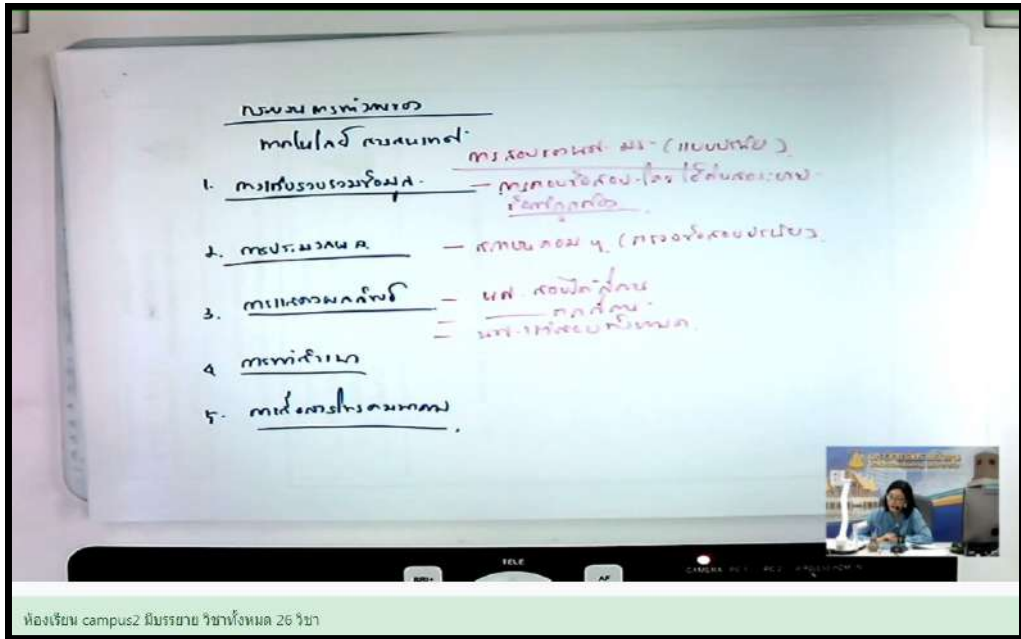 กระบวนการทำงานของ
เทคโนโลยี สารสนเทศ
การสอบของนศ. มร. (แบบปรนัย)
1. การเก็บรวบรวมข้อมูล - การตอบข้อสอบ โดยใช้ดินสอระบาย
ข้อที่ถูกต้อง
2. การประมวลผล - สถาบันคอมฯ (ตรวจข้อสอบปรนัย)
3. การแสดงผลลัพธ์ - นศ. สอบได้กี่คน
- ตกกี่คน
- ทั้งหมด
4 การทำสำเนา
5. การสื่อสารโทรคมนาคม
TELE
AF
ห้องเรียน campus2 มีบรรยาย วิชาทั้งหมด 26 วิชา